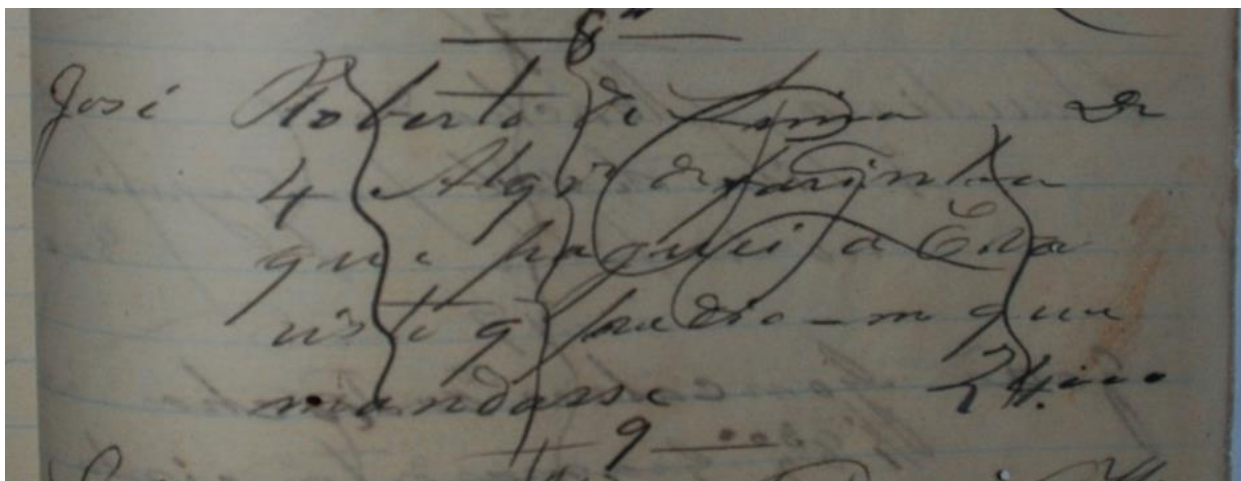 8
José Roberto de Lima De
4 Alqr de farinha
que paguei a Eva
visto q pedio-m que
mandasse 24....
9